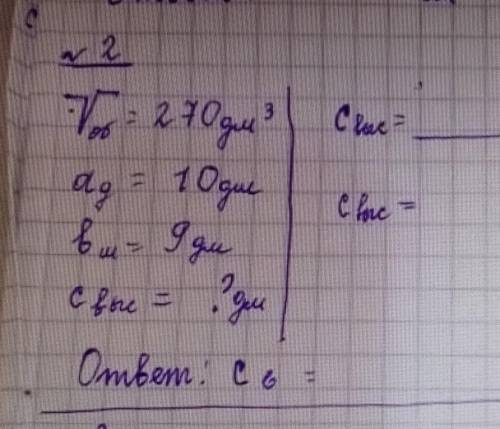 № 2
Vоб = 270 дм³
aд = 10 дм
вш = 9 дм
Cвыс = ? дм
Cвыс =
Cвыс =
Ответ: Cв =